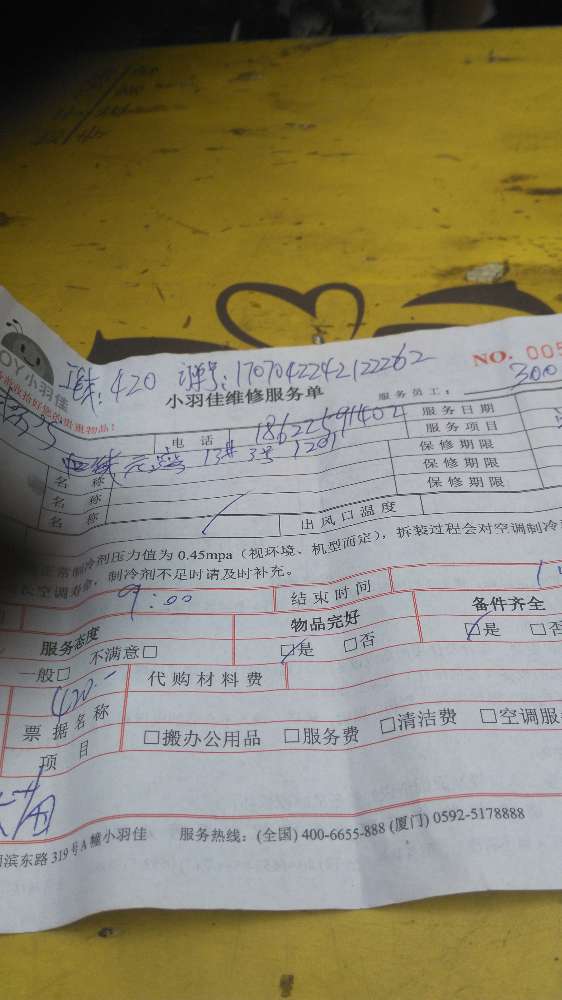 OY小羽佳
420 170704224212262
NO. 005
300
收拾好您的贵重物品!
小羽佳维修服务单
服务员工:
电话 服务日期
13# 3号 1201 服务项目
名称 保修期限
名称 保修期限
名称 保修期限
出风口温度
正常制冷剂压力值为 0.45mpa(视环境、机型而定),拆装过程会对空调制冷
空调寿命,制冷剂不足时请及时补充。
9:00 结束时间
服务态度 物品完好 备件齐全
一般□ 不满意□ □是 □否 □是 □否
420.- 代购材料费
票据名称
项目 □搬办公用品 □服务费 □清洁费 □空调服
滨东路 319 号 A 幢小羽佳 服务热线:(全国) 400-6655-888 (厦门) 0592-5178888